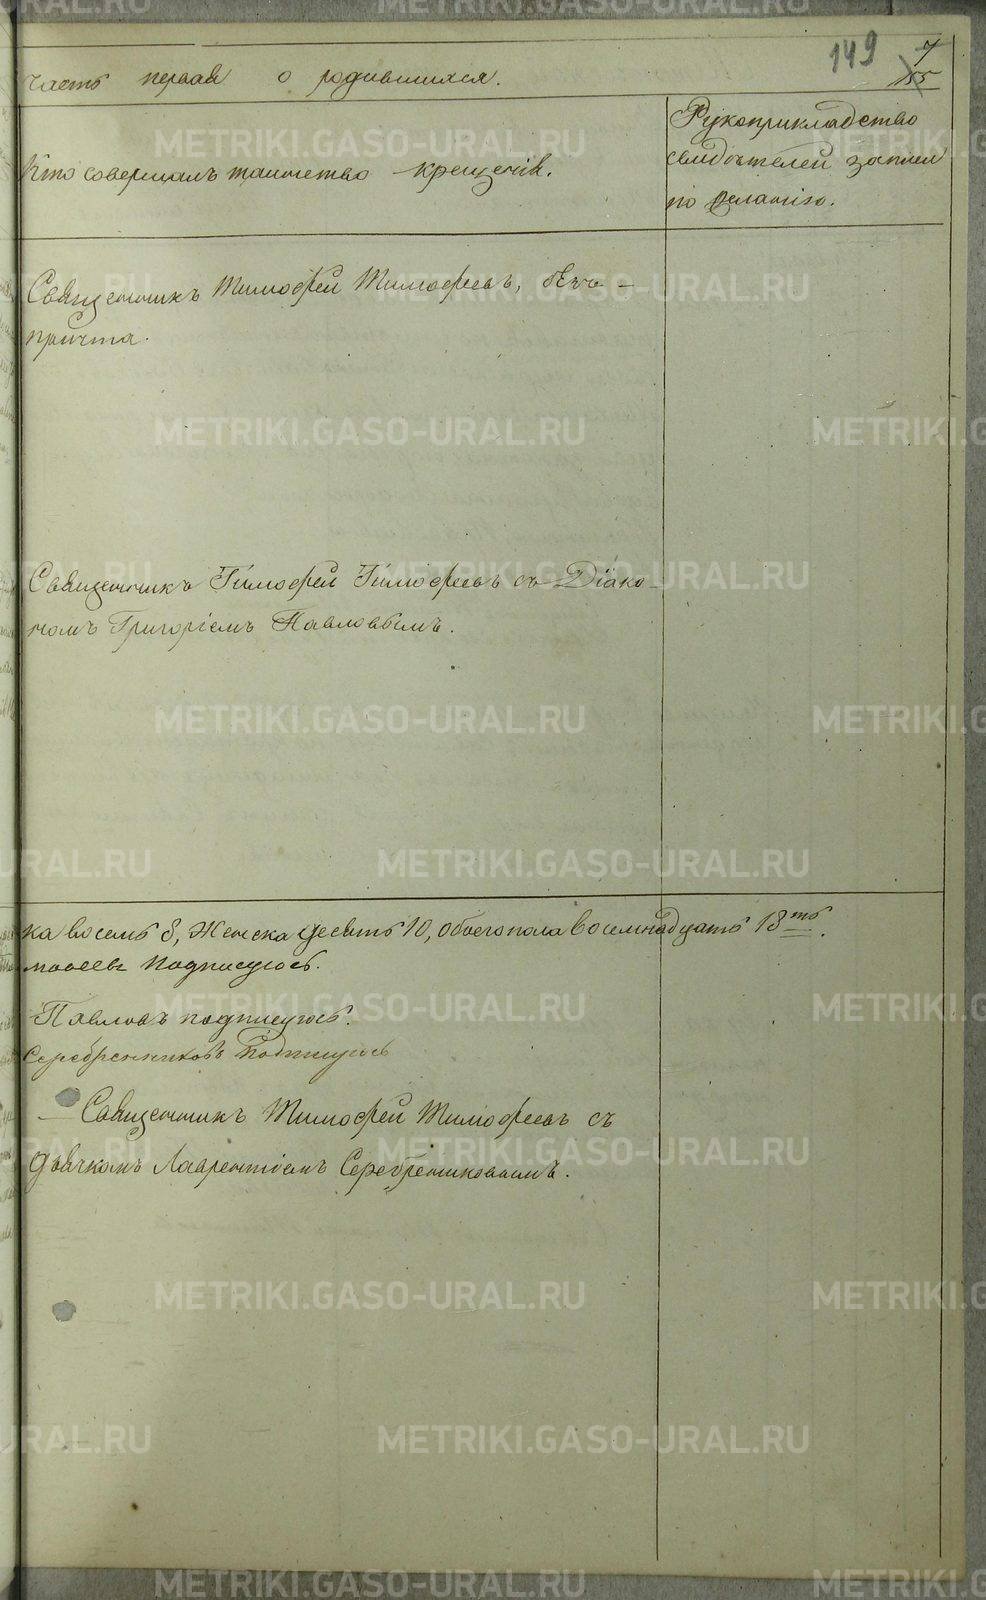 149 7
часть первая о родившихся.
Кто совершалъ таинство крещенія.
Рукоприкладство
свидѣтелей записи
по желанію.
Священникъ Тимофей Тимофеевъ, безъ
причта.
Священникъ Тимофей Тимофеевъ съ Діако-
номъ Григоріемъ Павловымъ.
ка восемь 8, Женска десять 10, обоего пола восемнадцать 18ть.
мофеевъ подписуюсь.
Павловъ подписуюсь.
Серебренниковъ подпишуюсь
Священникъ Тимофей Тимофеевъ съ
дьячкомъ Лаврентіемъ Серебрениковымъ.
METRIKI.GASO-URAL.RU